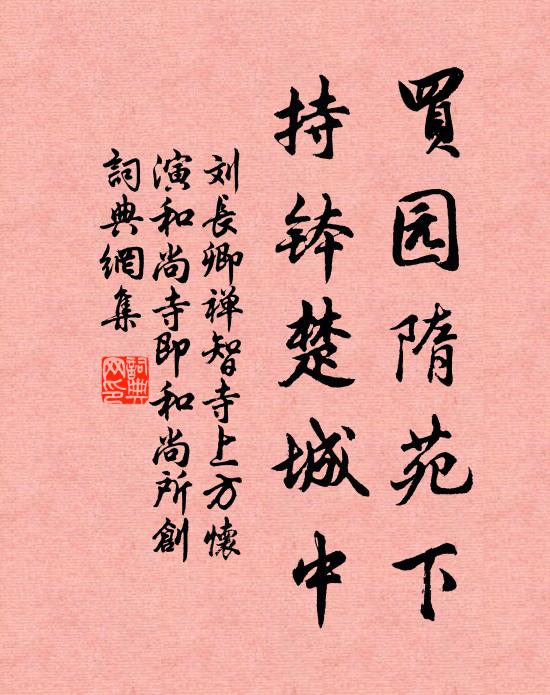 買园隋苑下
持钵楚城中
刘長卿禅智寺上方懷
演和尚寺即和尚所創
詞典網集
詞典
网印